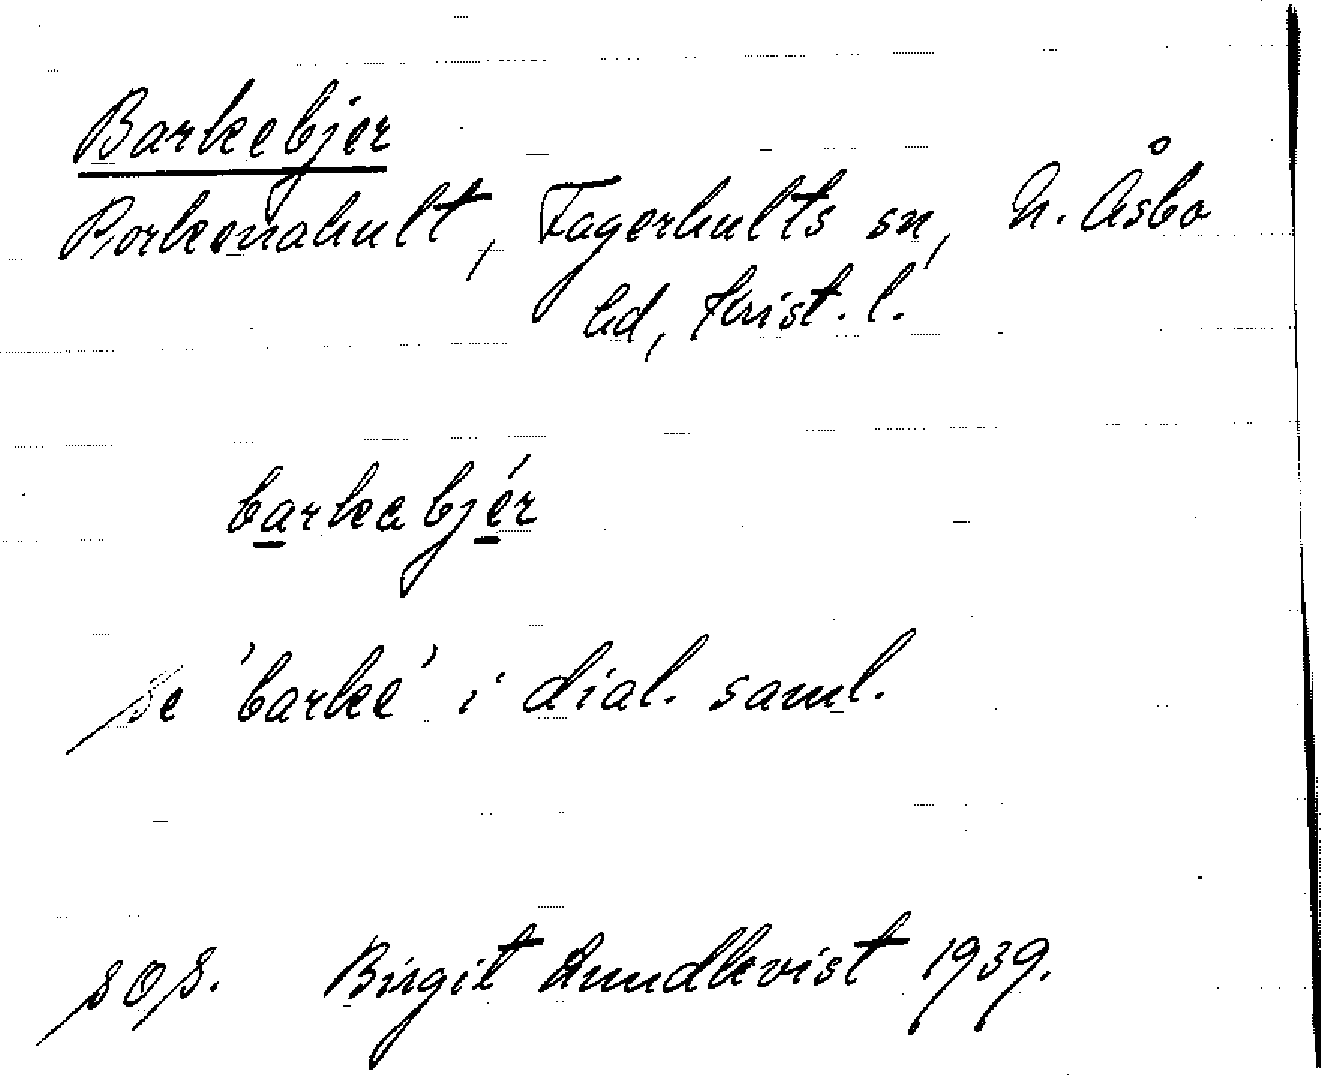 Barkebjer
Porkenahult, Fagerhults sn, N. Åsbo
hd, Krist. l.
barkabjér
Se 'barke' i dial. saml.
SOS. Birgit Lundkvist 1939.